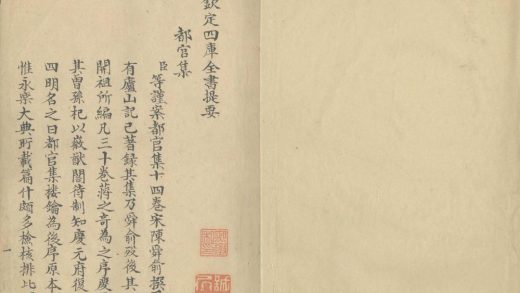 欽定四庫全書提要
都官集
臣等謹案都官集十四卷宋陳舜俞撰
有廬山記已著録其集乃舜俞歿後其
開祖所編凡三十卷蔣之奇為之序慶
其曾孫杞以徽猷閣待制知慶元府復
四明名之曰都官集樓鑰為後序原本
惟永樂大典貯載篇什頗多檢核排比
一